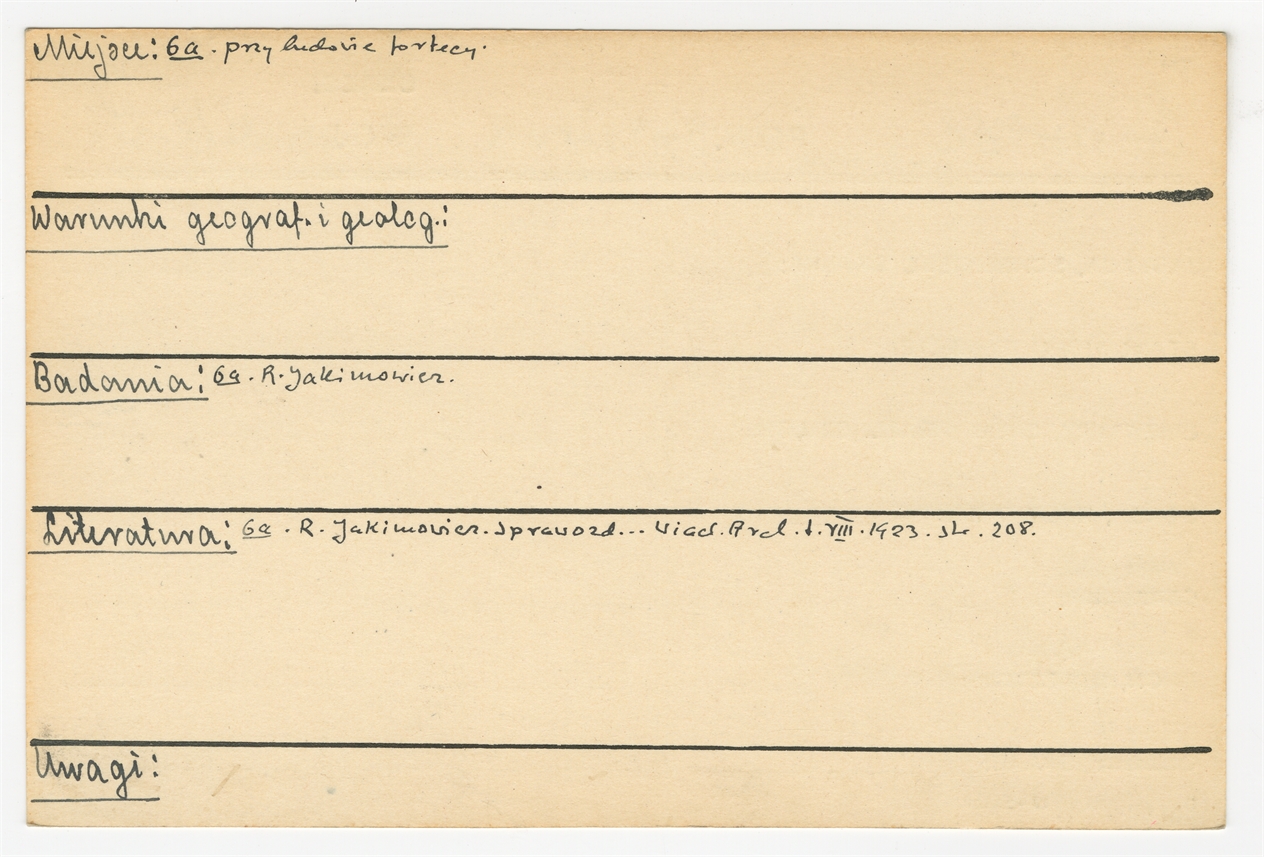 Miejsce: 6a. przy budowie fortecy.
Warunki geograf. i geolog.:
Badania: 6a. R. Jakimowicz.
Literatura: 6a. R. Jakimowicz. Sprawozd... Wiad. Arch. t. VIII. 1923. str. 208.
Uwagi: